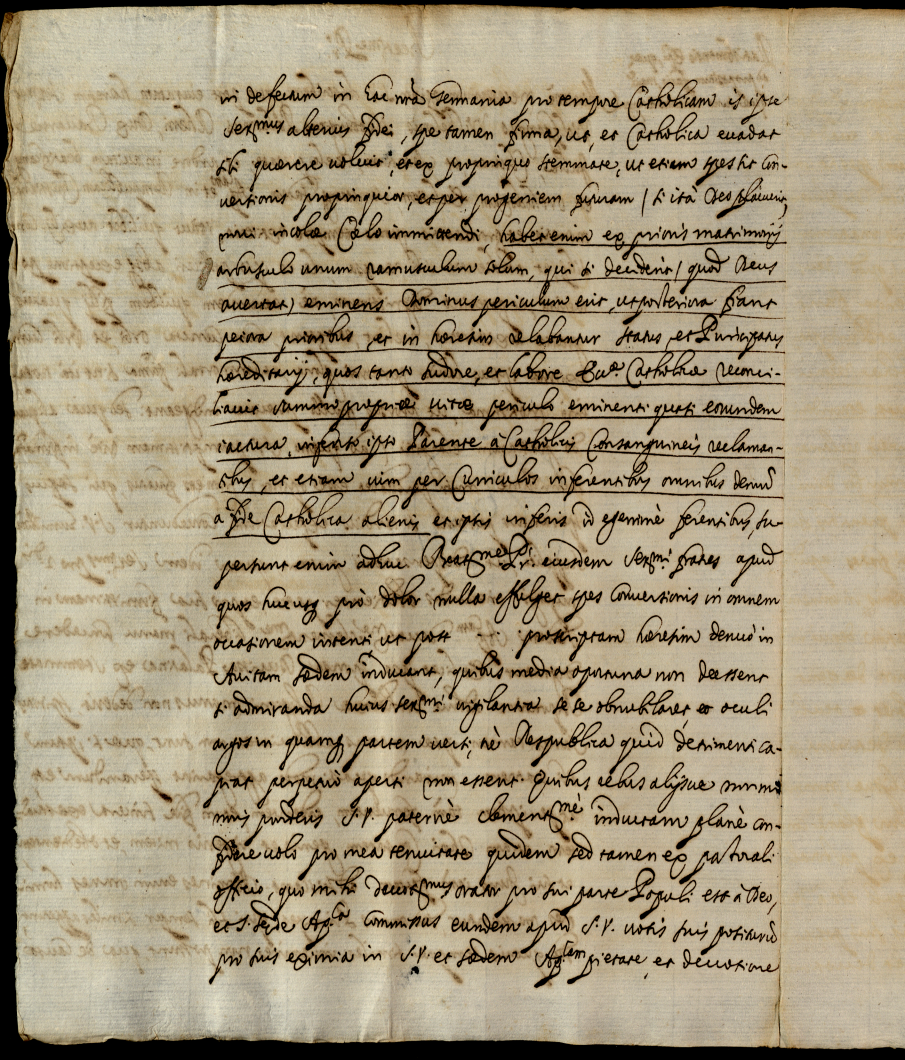 in defectum in hac nrâ Germania pro tempore Catholicam is ipse
Ser.mus alterius fidei, spe tamen firma, ut, et Catholica evadat
sibi quærere voluit, et ex propinquo stemmate, ut etiam spes sit con-
versionis propinquior, et per progeniem futuram / si ità Deo placuerit,
novi incolæ Cælo immittendi, habet enim ex prioris matrimonij
arbusculo unum ramusculum solum, qui si deciderit / quod Deus
avertat / eminens Dominus periculum erit, ut posteriora fiant
peiora prioribus, et in hæresim delabantur status, et Principatus
hæreditarij, quos tanto sudore, et labore Catholicæ reconci-
liavit summo propriæ vitæ periculo eminenti quasi eorundem
iactura, inferente ipso Parente à Catholicis Consanguineis reclaman-
tibus, et etiam vim per Cuniculos inferentibus omnibus denuò
a fide Catholica alienis et ipsis inferis id egerrimè ferentibus, su-
persunt enim adhuc eiusdem Ser.mi fratres apud
quos hucusq. prò dolor nulla effulget spes Conversionis in omnem
occasionem intenti, ut post ... proscriptam hæresim denuò in
Avitam sedem inducant, quibus media oportuna non deessent
si admiranda huius Ser.mi vigilantia se se obnubilaret, et oculi
argos in quamq. partem versi, nè Respublica quid detrimenti ca-
piat perpetuò aperti non essent. Quibus rebus alijsque
S.V. paternè clement.mè inducam planè con-
fidere volo pro mea tenuitate quidem sed tamen ex pastorali
officio, quo mihi devot.mus orator pro sui parte Populi est à Deo,
et S. Sede Ap.ca Commissus eundem apud S.V. votis suis potiturum
pro suis eximia in S.V. et sedem Ap.cam pietate, et devotione